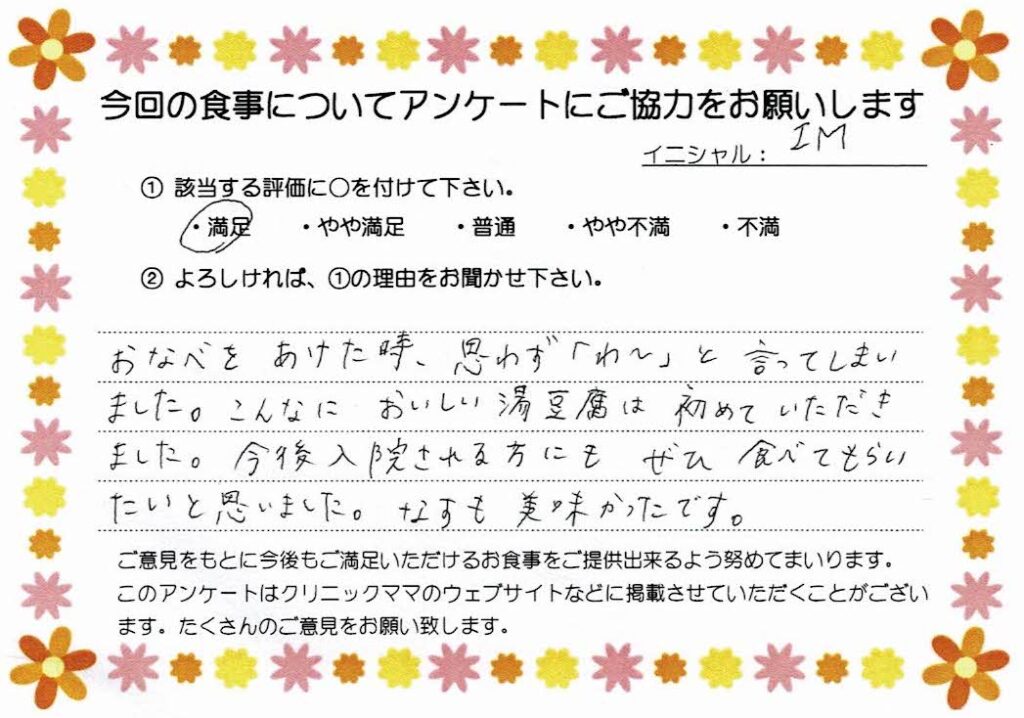 今回の食事についてアンケートにご協力をお願いします
イニシャル： IM
① 該当する評価に○を付けて下さい。
・満足 ・やや満足 ・普通 ・やや不満 ・不満
② よろしければ、①の理由をお聞かせ下さい。
おなべを あけた時、思わず「わ〜」と 言ってしまい
ました。こんなに おいしい 湯豆腐は 初めて いただき
ました。今後入院される方にも ぜひ 食べてもらい
たいと思いました。なすも 美味かったです。
ご意見をもとに今後もご満足いただけるお食事をご提供出来るよう努めてまいります。
このアンケートはクリニックママのウェブサイトなどに掲載させていただくことがござい
ます。たくさんのご意見をお願い致します。